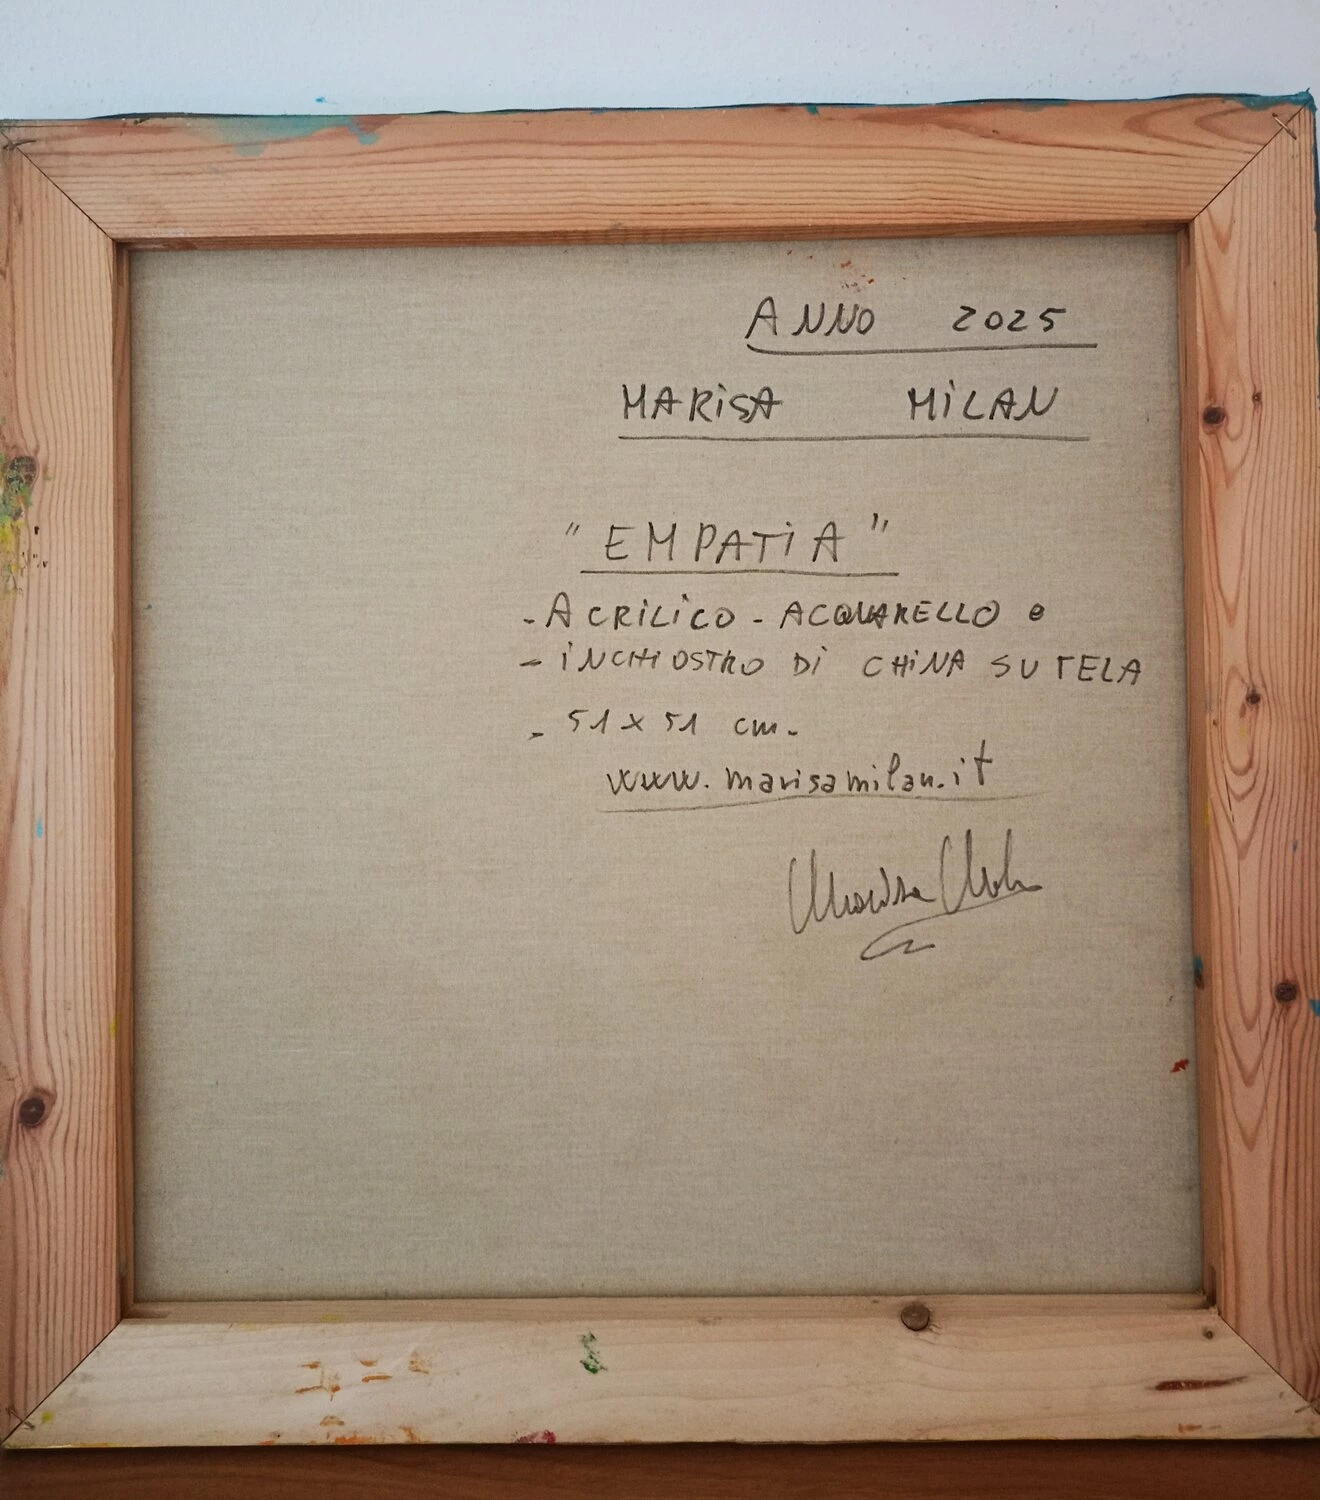 ANNO 2025
MARiSA MiLAN
"EMPATiA"
- ACRiLiCO - ACQUARELLO e
- iNCHiOSTRO Di CHiNA SU TELA
- 51 x 51 cm.
www.marisamilan.it
Marisa Milan